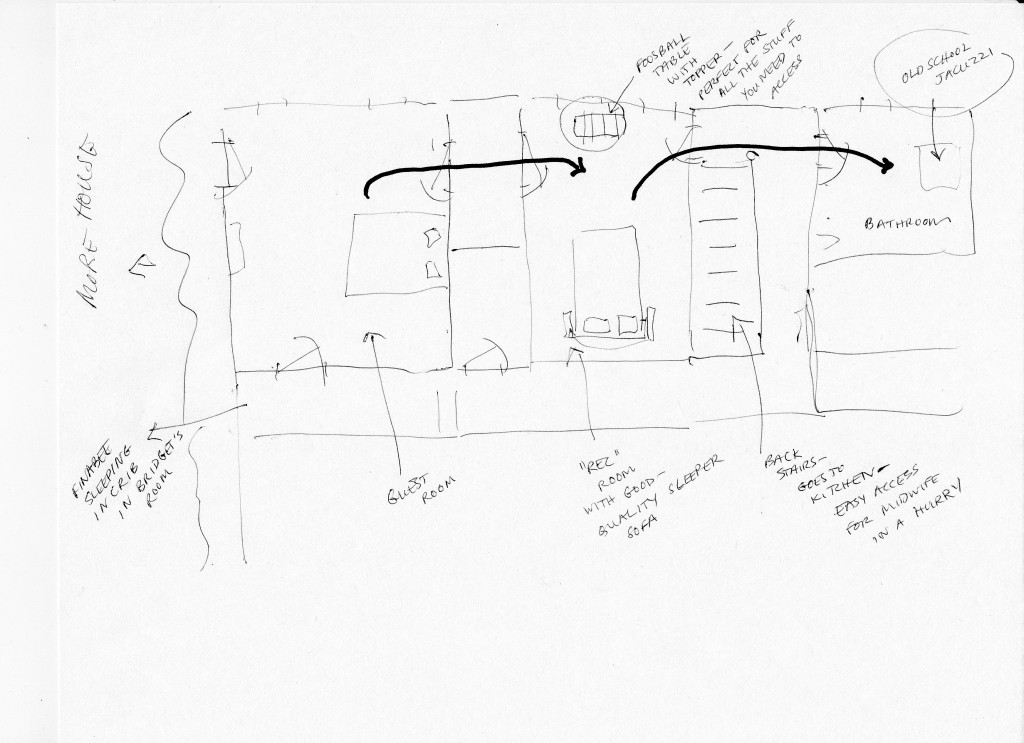 FOOSBALL
TABLE
WITH
TOPPER —
PERFECT FOR
ALL THE STUFF
YOU NEED TO
ACCESS
OLD SCHOOL
JACUZZI
MORE HOUSE
BATHROOM
FINABEE
SLEEPING
IN CRIB
IN BRIDGET'S
ROOM
GUEST
ROOM
"REC"
ROOM
WITH GOOD-
QUALITY SLEEPER
SOFA
BACK
STAIRS —
GOES TO
KITCHEN —
EASY ACCESS
FOR MIDWIFE
IN A HURRY